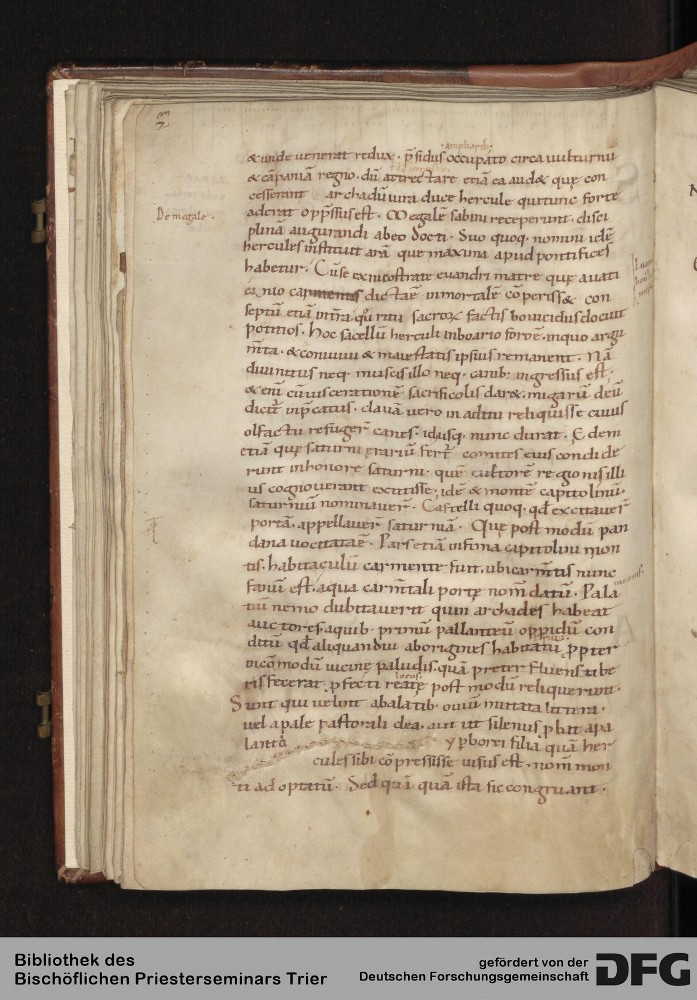 ampliorib;
& unde venerat redux. p̄sidus occupato circa vulturnū
& cāpaniā regio. dū attrectare etiā ea aud& quę con
cesserant archadū iura duce hercule qui tunc forte
De megale.
aderat opp̄ssus est. Megalę sabini receperunt. disci
plinā augurandi ab eo docti. Suo quoq. nomini idē
hercules instituit arā quę maxima apud pontifices
habetur. Cū se ex nicostrate evandri matre quę a vati
cinio carmentis dictaē inmortalē cōperiss& con
septū etiā intra quo ritu sacrox factis bovicidus docuit
potitios. hoc sacellū herculi in boario foroē. in quo argu
m̄ta. & convivii & maiestatis ipsius remanent. Nā
divinitus neq. muscis illo neq. canib: ingressus est.
& enī cū viscerationē sacrificolis dar&. migarū deū
dicit inp̄catus. clavā vero in aditu reliquisse cuius
olfactu refuger̄ canes. id usq. nunc durat. Ędem
etiā quę saturni ęrariū fert comites eius condide
runt in honorē saturni. quē cultorē regionis illi
us cognoverant extitisse. idē & montē capitolinū.
saturniū nominaver̄. Castelli quoq. qd̄ excitaver̄
portā. appellaver̄ saturniā. Quę post modū pan
dana vocitataē. Pars etiā infima capitolini mon
tis. habitaculū carmentę fuit. ubi carm̄tis nunc
fanū est. a qua carm̄tali portę nom̄ datū. Pala
tiū nemo dubitaverit quin archades habeat
auctores. a quib. primū pallanteū oppidū con
ditū qd̄ aliquandiu aborigines habitatū. p̄pter
incōmodū vicinę paludis. quā preter fluens tibe
ris fecerat. p̄fecti reatę post modū reliquerunt.
Sunt qui velint a balatib. oviū mutata littera.
vel a pale pastorali dea. aut ut silenus p̄bat a pa
lanto yp̄borei filia quā her
cules sibi cōpressisse visus est. nom̄ mon
ti adoptatū. Sed quā quā ista sic congruant.
Bibliothek des
Bischöflichen Priesterseminars Trier
gefördert von der
Deutschen Forschungsgemeinschaft
DFG